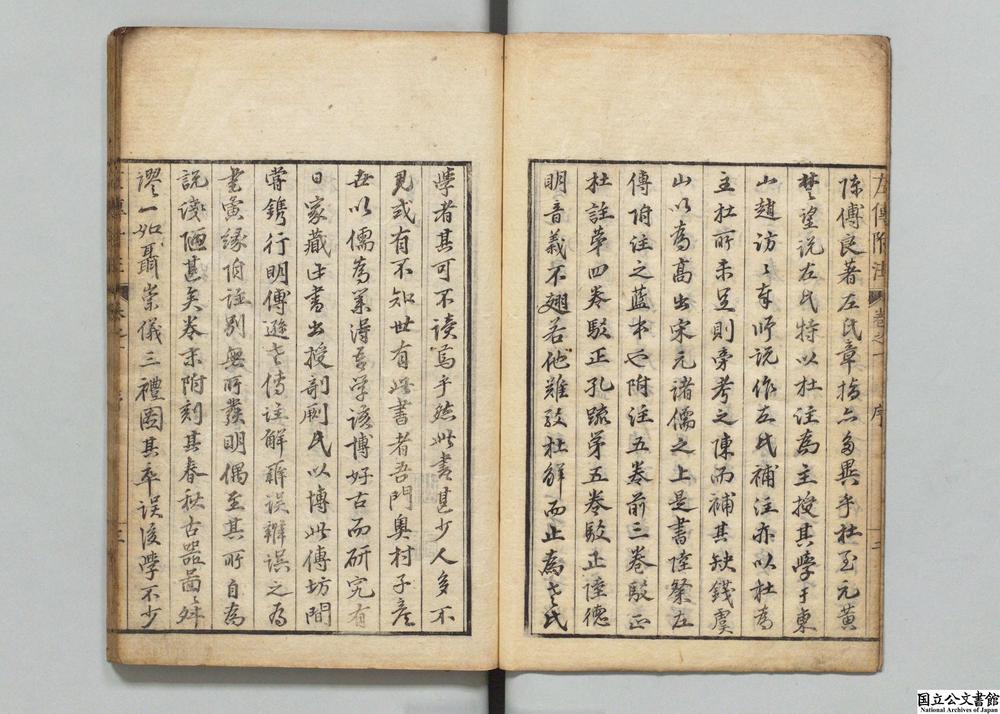 陳傅良著左氏章指亦多異乎杜至元黃
楚望說左氏特以杜注為主授其學于東
山趙訪訪奉師說作左氏補注亦以杜為
主杜所未足則旁考之陳而補其缺錢虞
山以為高出宋元諸儒之上是書陸粲左
傳附注之藍本也附注五卷前三卷駁正
杜註第四卷駁正孔疏第五卷駁正陸德
明音義不翅若他難攷杜解而止為左氏
學者其可不讀焉乎然此書甚少人多不
見或有不知世有此書者吾門奧村子彥
世以儒為業淂吾学該博好古而研究有
日家藏此書出授剞劂氏以博此傳坊間
嘗鐫行明傅遜左傳註解辨誤辨誤之為
書寅緣附註別無所發明偶至其所自為
說淺陋甚矣卷末附刻其春秋古器圖舛
謬一如聶崇儀三禮圖其卒誤後學不少
左傳附注 卷之一 序 二
三
国立公文書館
National Archives of Japan